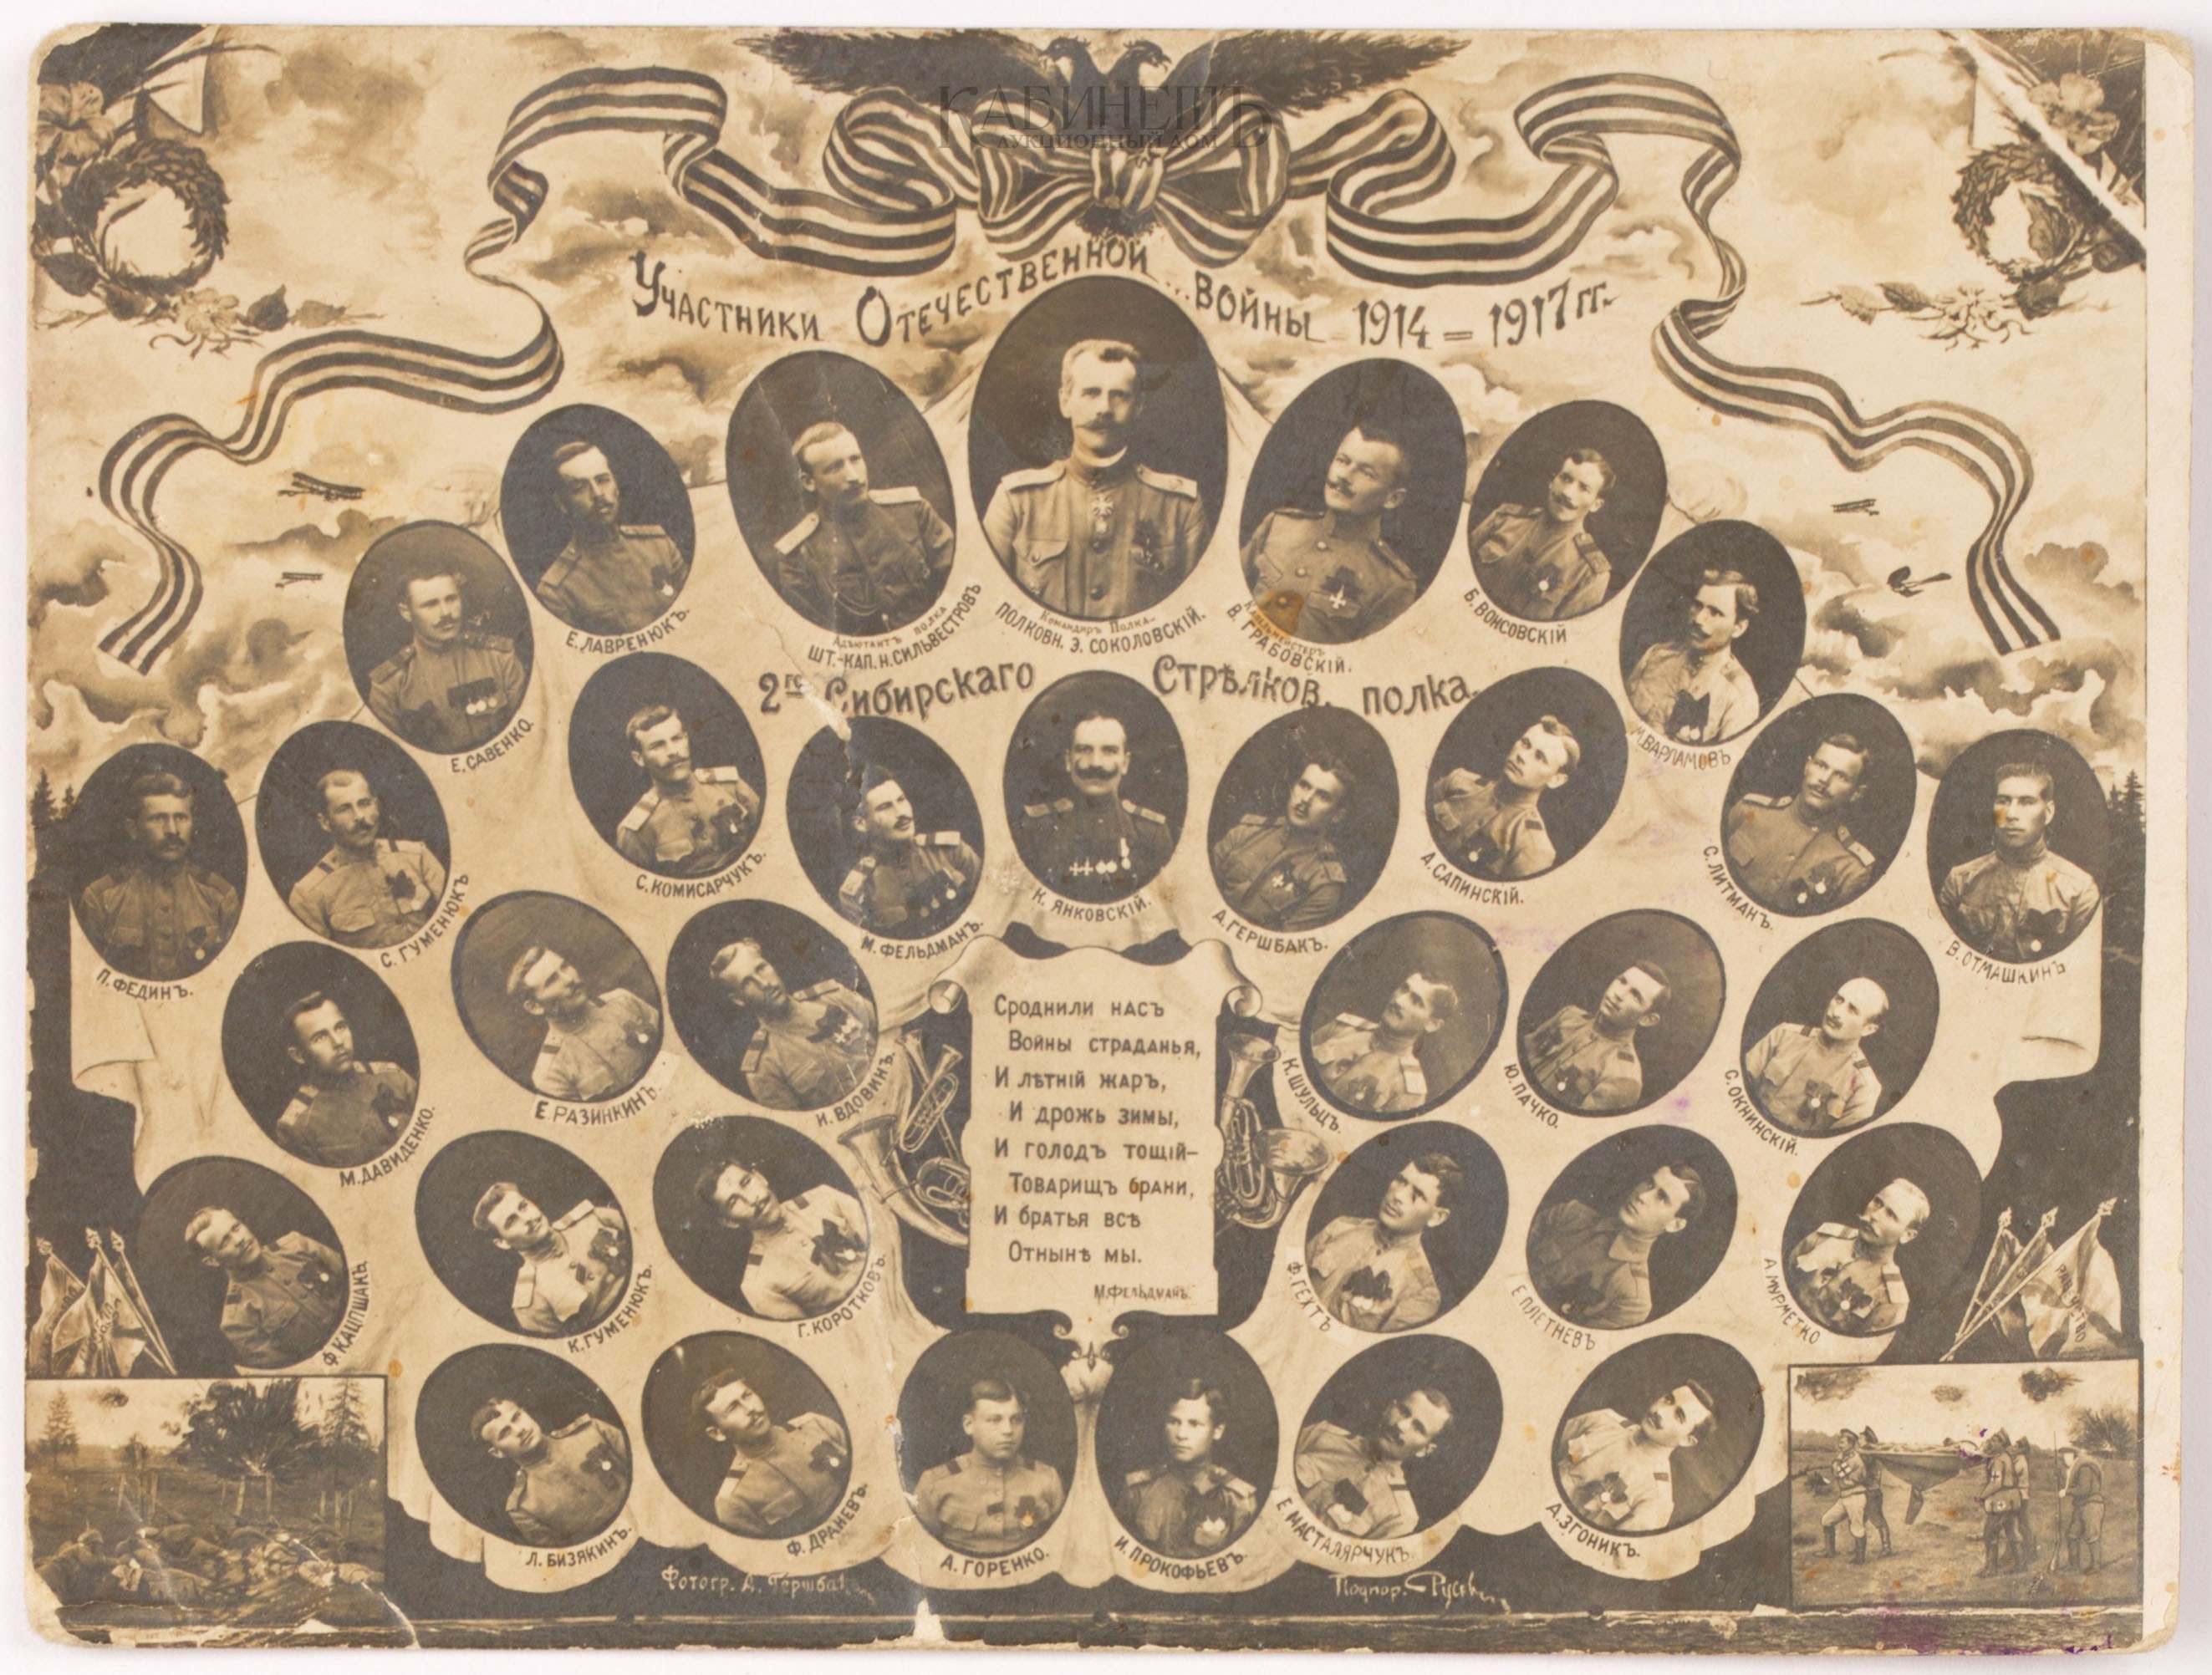 КАБИНЕТЪ
АУКЦИОННЫЙ ДОМ
Участники Отечественной войны 1914=1917 гг.
Е. ЛАВРЕНЮКЪ.
Адъютантъ полка
ШТ.-КАП. Н. СИЛЬВЕСТРОВЪ
Командиръ Полка
ПОЛКОВН. Э. СОКОЛОВСКІЙ.
Капельмейстеръ
В. ГРАБОВСКІЙ.
Б. ВОНСОВСКІЙ
2го Сибирскаго Стрѣлков. полка.
Е. САВЕНКО.
М. ВАРЛАМОВЪ
П. ФЕДИНЪ.
С. ГУМЕНЮКЪ
С. КОМИСАРЧУКЪ.
М. ФЕЛЬДМАНЪ.
К. ЯНКОВСКІЙ.
А. ГЕРШБАКЪ.
А. САПИНСКІЙ.
С. ЛИТМАНЪ.
В. ОТМАШКИНЪ
М. ДАВИДЕНКО.
Е. РАЗИНКИНЪ.
И. ВДОВИНЪ.
К. ШУЛЬЦЪ.
Ю. ПАЧКО.
С. ОКНИНСКІЙ.
Сроднили насъ
Войны страданья,
И лѣтній жаръ,
И дрожь зимы,
И голодъ тощій–
Товарищъ брани,
И братья всѣ
Отнынѣ мы.
М. Фельдманъ.
Ф. КАЦПЩАКЪ
К. ГУМЕНЮКЪ.
Г. КОРОТКОВЪ.
Ф. ГЕХТЪ
Е. ПЛЕТНЕВЪ
А. МУРМЕТКО
Л. БИЗЯКИНЪ.
Ф. ДРАНЕВЪ.
А. ГОРЕНКО.
И. ПРОКОФЬЕВЪ.
Е. МАСТАЛЯРЧУКЪ.
А. ЗГОНИКЪ.
Фотогр. А. Гершбак
Подпор.